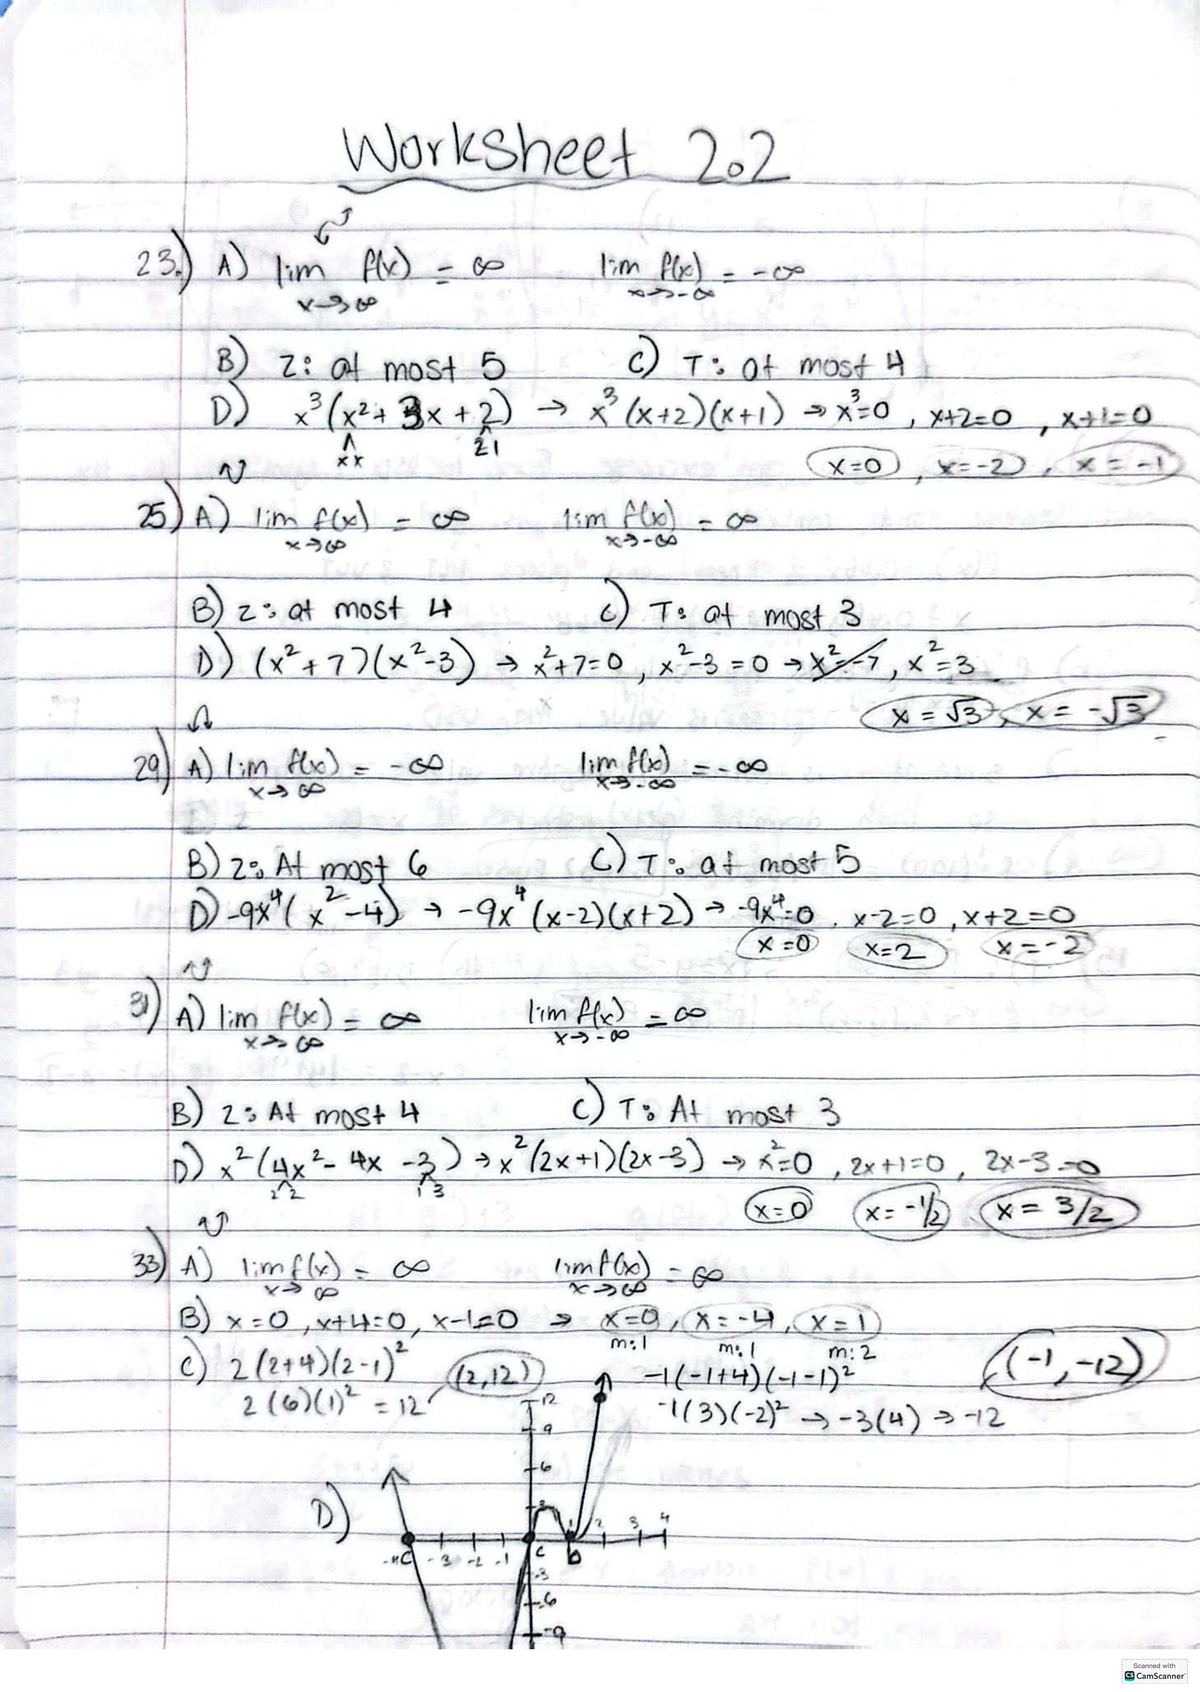 Worksheet 2.2
23.) A) lim f(x) = ∞ lim f(x) = -∞
x→∞ x→-∞
B) Z: at most 5 C) T: at most 4
D) x³(x²+3x+2) → x³(x+2)(x+1) → x³=0, x+2=0, x+1=0
x x 2 1 x=0, x=-2, x=-1
25) A) lim f(x) = ∞ lim f(x) = ∞
x→∞ x→-∞
B) Z: at most 4 C) T: at most 3
D) (x²+7)(x²-3) → x²+7=0, x²-3=0 → x²=-7, x²=3
x=√3, x=-√3
29) A) lim f(x) = -∞ lim f(x) = -∞
x→∞ x→-∞
B) Z: At most 6 C) T: at most 5
D) -9x⁴(x²-4) → -9x⁴(x-2)(x+2) → -9x⁴=0, x-2=0, x+2=0
x=0 x=2 x=-2
31) A) lim f(x) = ∞ lim f(x) = ∞
x→∞ x→-∞
B) Z: At most 4 C) T: At most 3
D) x²(4x²-4x-3) → x²(2x+1)(2x-3) → x²=0, 2x+1=0, 2x-3=0
2 2 1 3 x=0 x=-1/2 x=3/2
33) A) lim f(x) = ∞ lim f(x) = ∞
x→∞ x→∞
B) x=0, x+4=0, x-1=0 → x=0, x=-4, x=1
m:1 m:1 m:2
C) 2(2+4)(2-1)² (2,12) -1(-1+4)(-1-1)² (-1,-12)
2(6)(1)² = 12 -1(3)(-2)² → -3(4) → -12
12
9
6
3
D)
-4C -3 -2 -1 C 1 b 2 3 4
-3
-6
-9
Scanned with
CS CamScanner